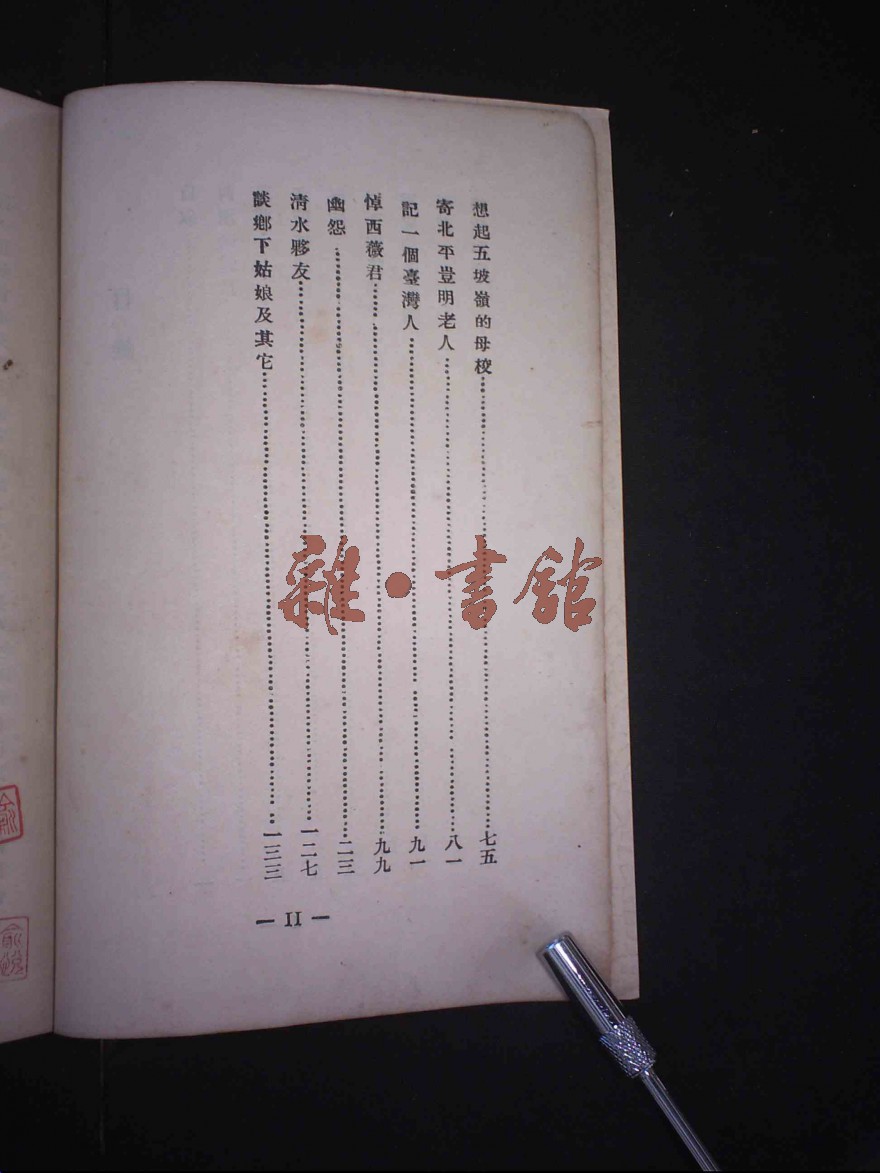 想起五坡嶺的母校……七五
寄北平豈明老人……八一
記一個臺灣人……九一
悼西薇君……九九
幽怨……二三
清水夥友……一二七
談鄉下姑娘及其它……一三三
— II —
雜·書館